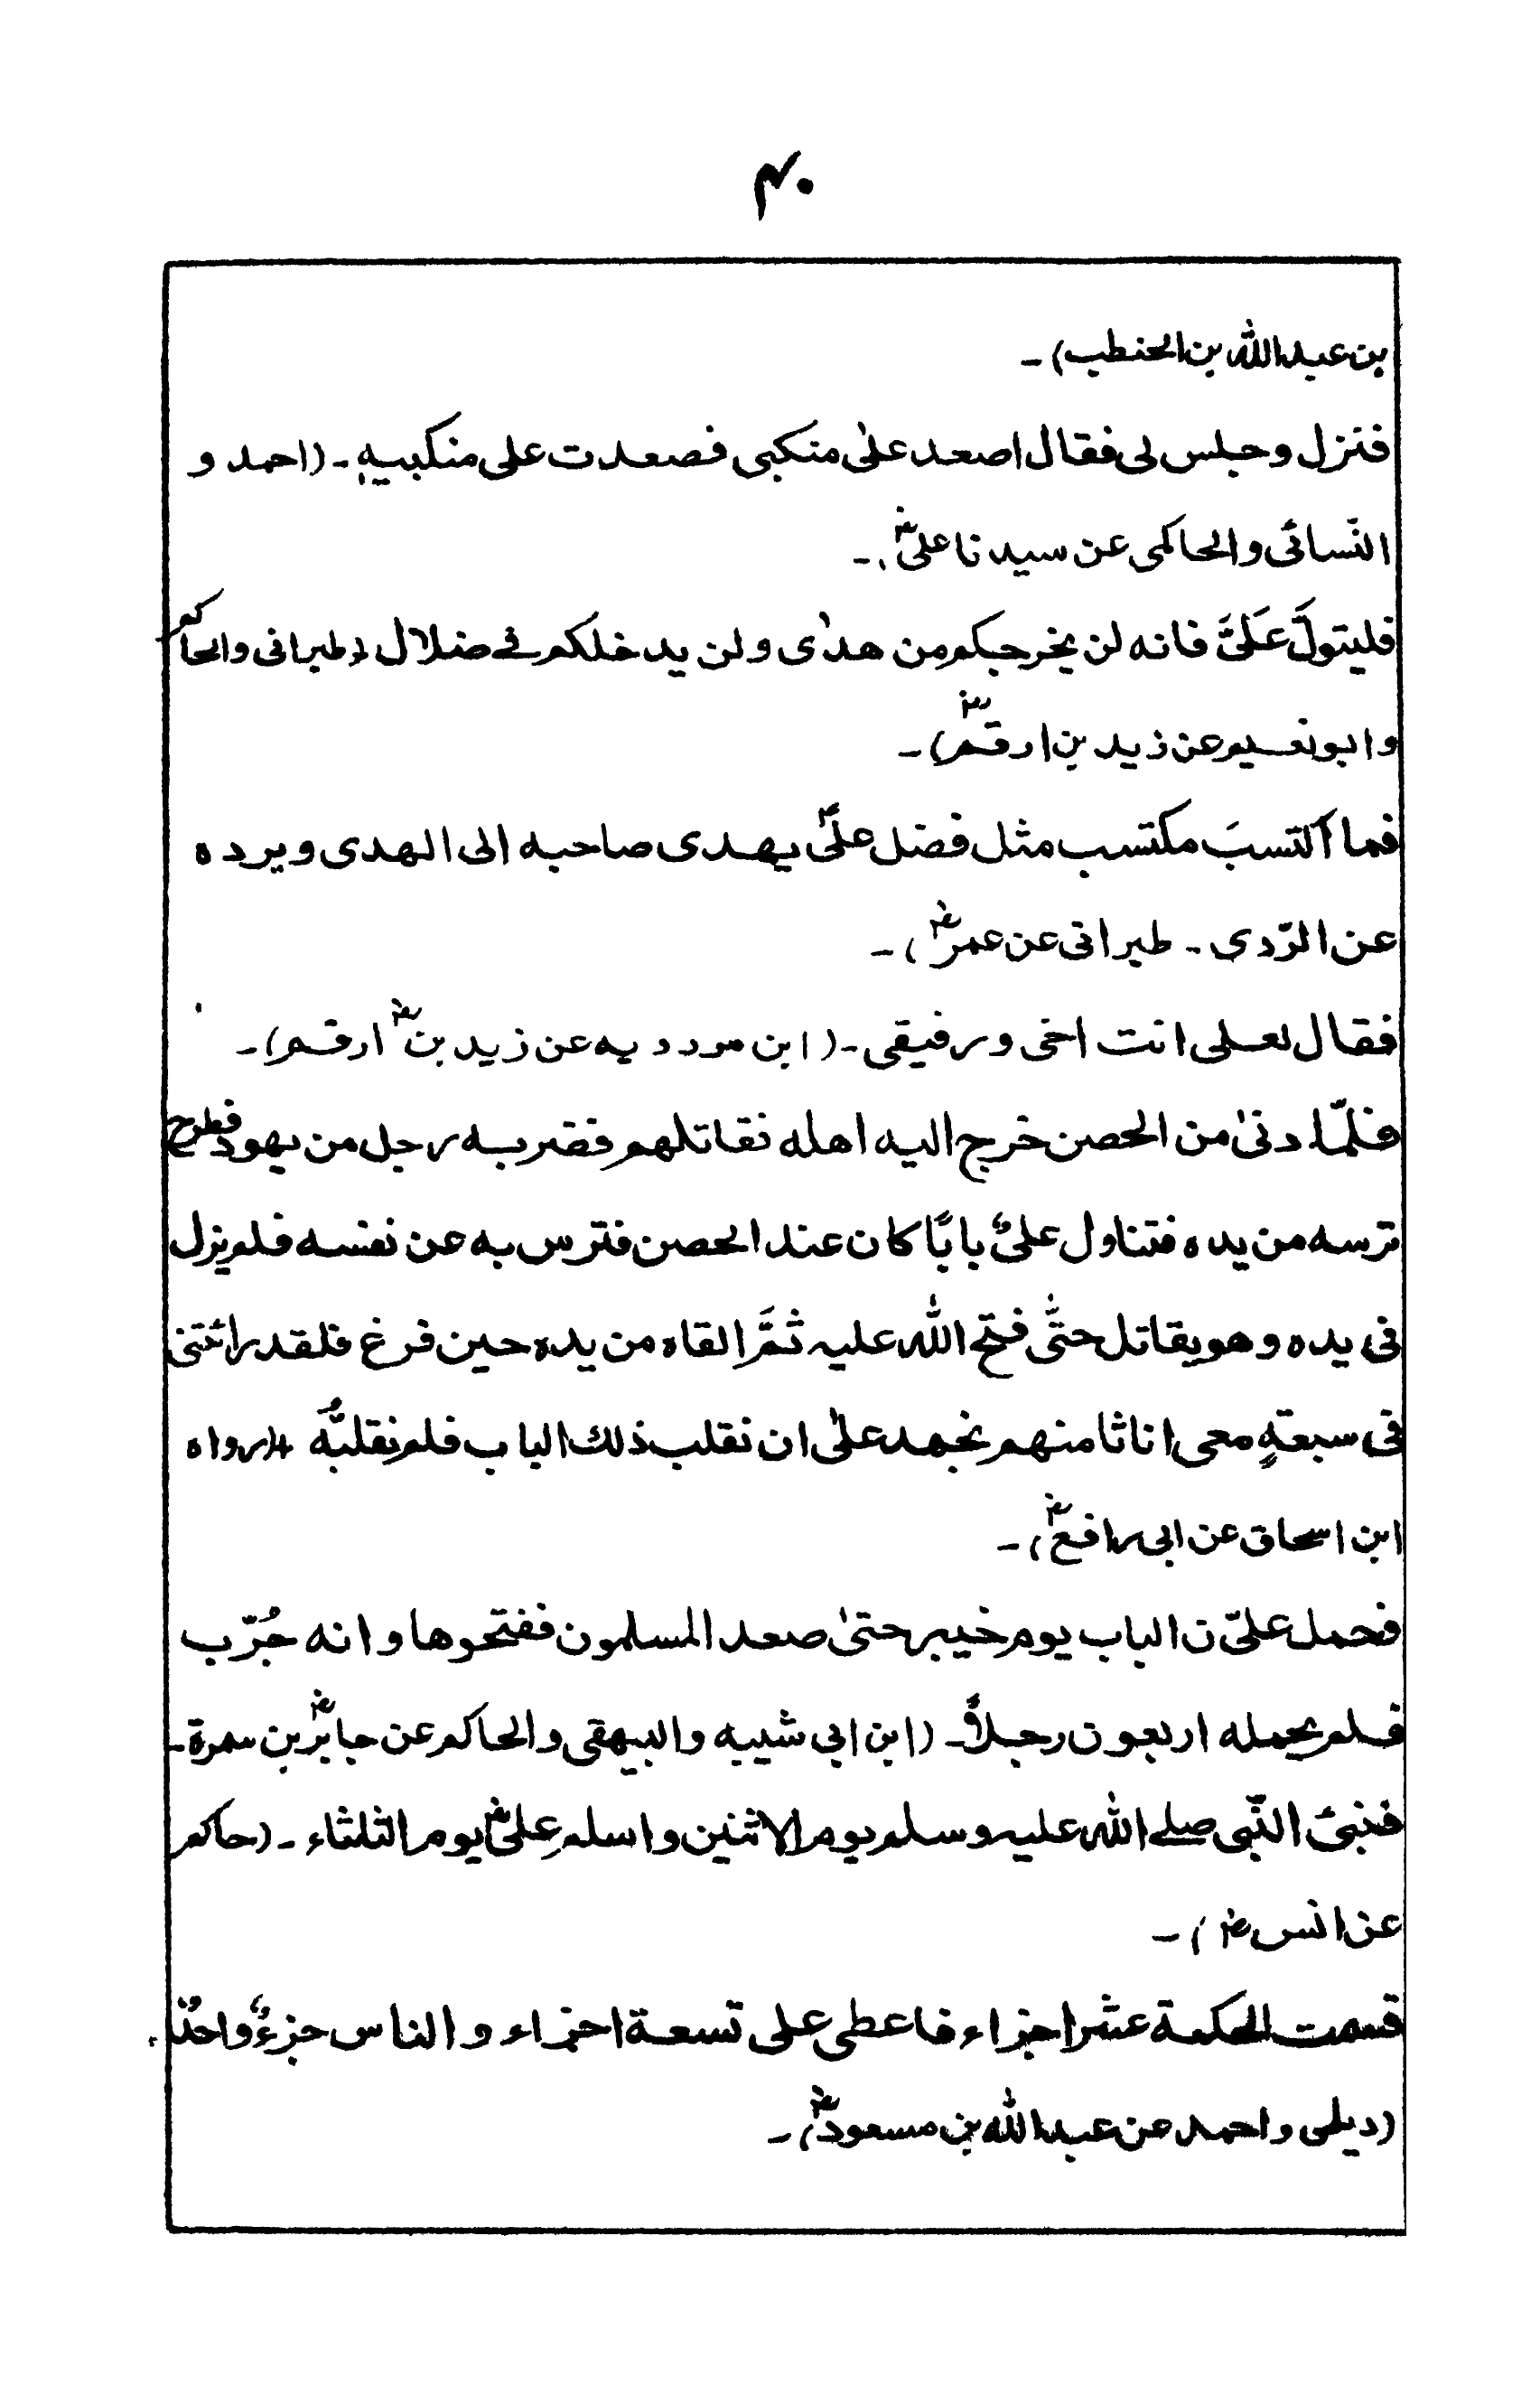 ۴۰
بن عبدالله بن الحنطب)۔
فنزل وجلس لی فقال اصعد علیٰ منکبی فصعدت علی منکبیہٖ۔ (احمد و
النّسائی والحاکمی عن سیدنا علیؓ)۔
فلیتولَّ عَلیَّ فانه لن یخرجکم من هدٰی ولن یدخلکم فے ضلال (طبرانی والحاکم
وابونعیم عن زید بن ارقمؓ)۔
فما اکتسبَ مکتسب مثل فضل علیؓ یهدی صاحبه الی الهدی ویرده
عن الرّدی۔ طبرانی عن عمرؓ)۔
فقال لعلی انت اخی ورفیقی۔ (ابن مردویه عن زید بنؓ ارقم)۔
فلمّا دنیٰ من الحصن خرج الیه اهله نقاتلهم فضربه رجل من یهود فطرح
ترسه من یده فتناول علیٌ بابًا کان عند الحصن فترس به عن نفسه فلم یزل
فی یده وهو یقاتل حتّٰی فتح اللّٰه علیه ثمَّ القاه من یده حین فرغ فلقد رائتنی
فی سبعةٍ معی اناثا منهم نجهد علیٰ ان نقلب ذلك الباب فلم نقلبُّه (رواه
ابن اسحاق عن ابی رافعؓ)۔
فحمل علیّ ن الباب یوم خیبر حتیٰ صعد المسلمون ففتحوها وانه جُرّب
فلم یحمله اربعون رجلاً۔ (ابن ابی شیبه والبیهقی والحاکم عن جابرؓ بن سمرة۔
فنبئ النّبی صلے اللّٰه علیه وسلم یوم الاثنین واسلم علیؓ یوم الثلثاء۔ (حاکم
عن انسؓ)۔
قسمت الحکمة عشر اجزاء فاعطی علی تسعة اجزاء والناس جزءٌ واحدٌ
(دیلمی واحمد عن عبداللّٰه بن مسعودؓ)۔